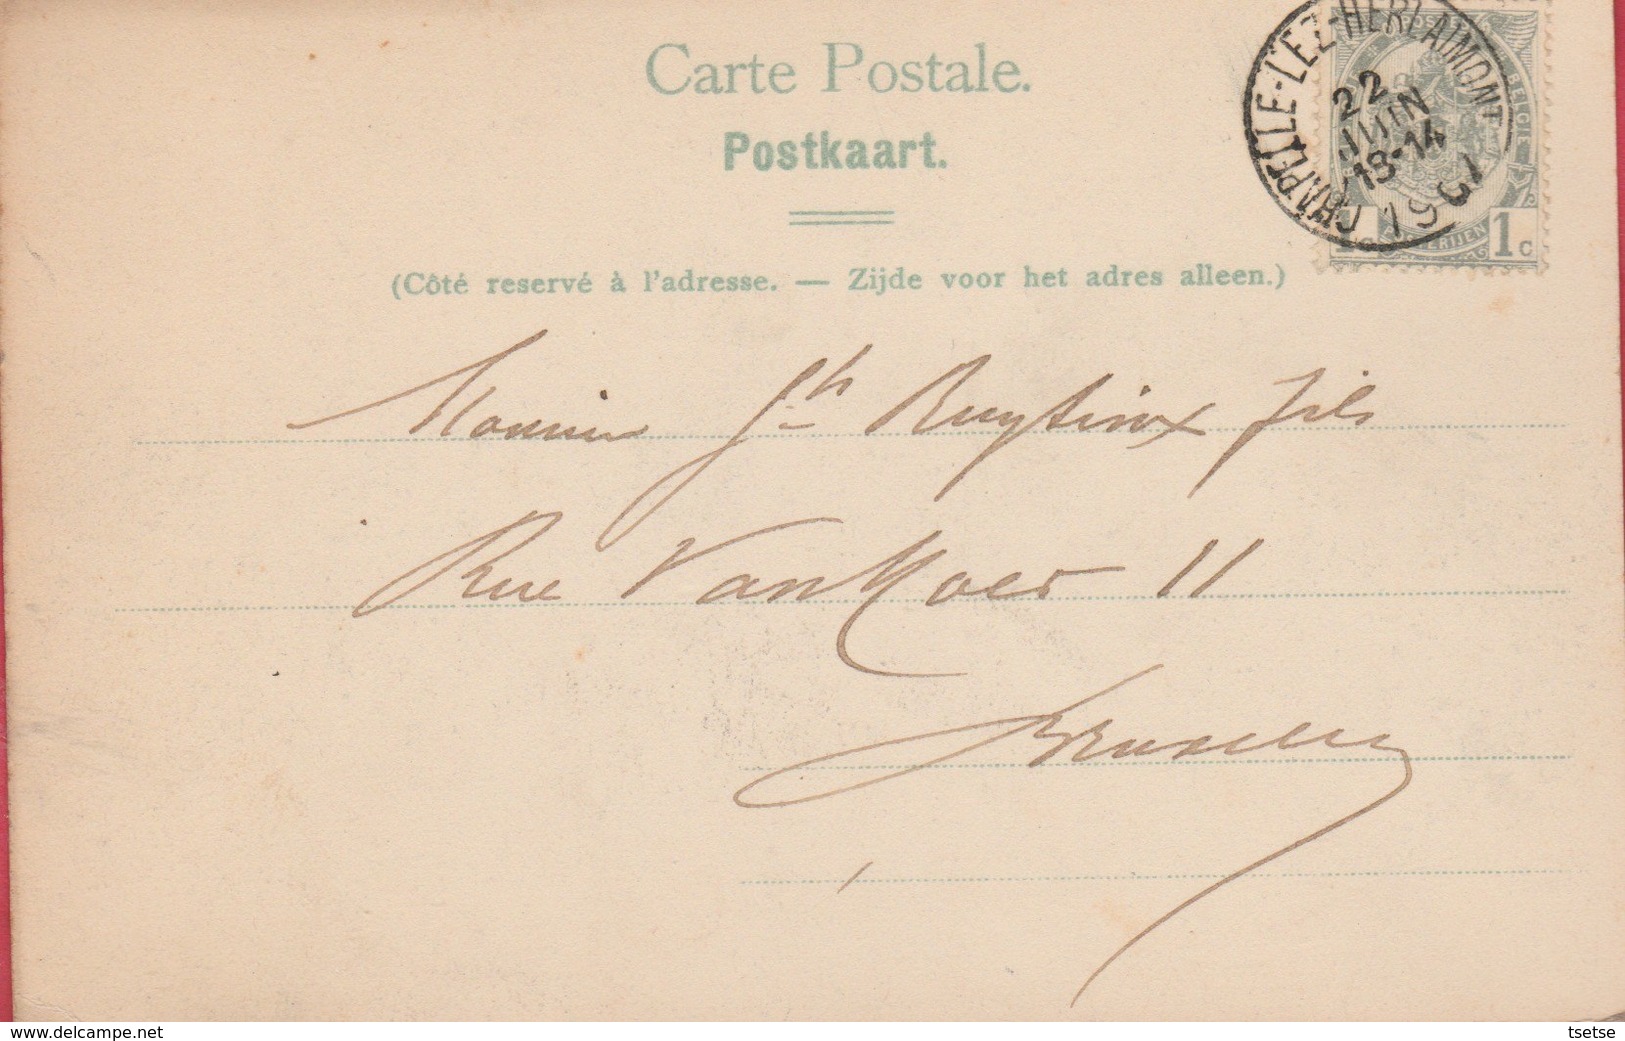 Carte Postale.
Postkaart.
(Côté reservé à l'adresse. — Zijde voor het adres alleen.)
CHAPELLE-LEZ-HERLAIMONT
22
JUIN
18-14
1901
BELGIE
POSTERIJEN
1c 1c
Jh fils
Rue Van Moer 11
Bruxelles
www.delcampe.net
tsetse